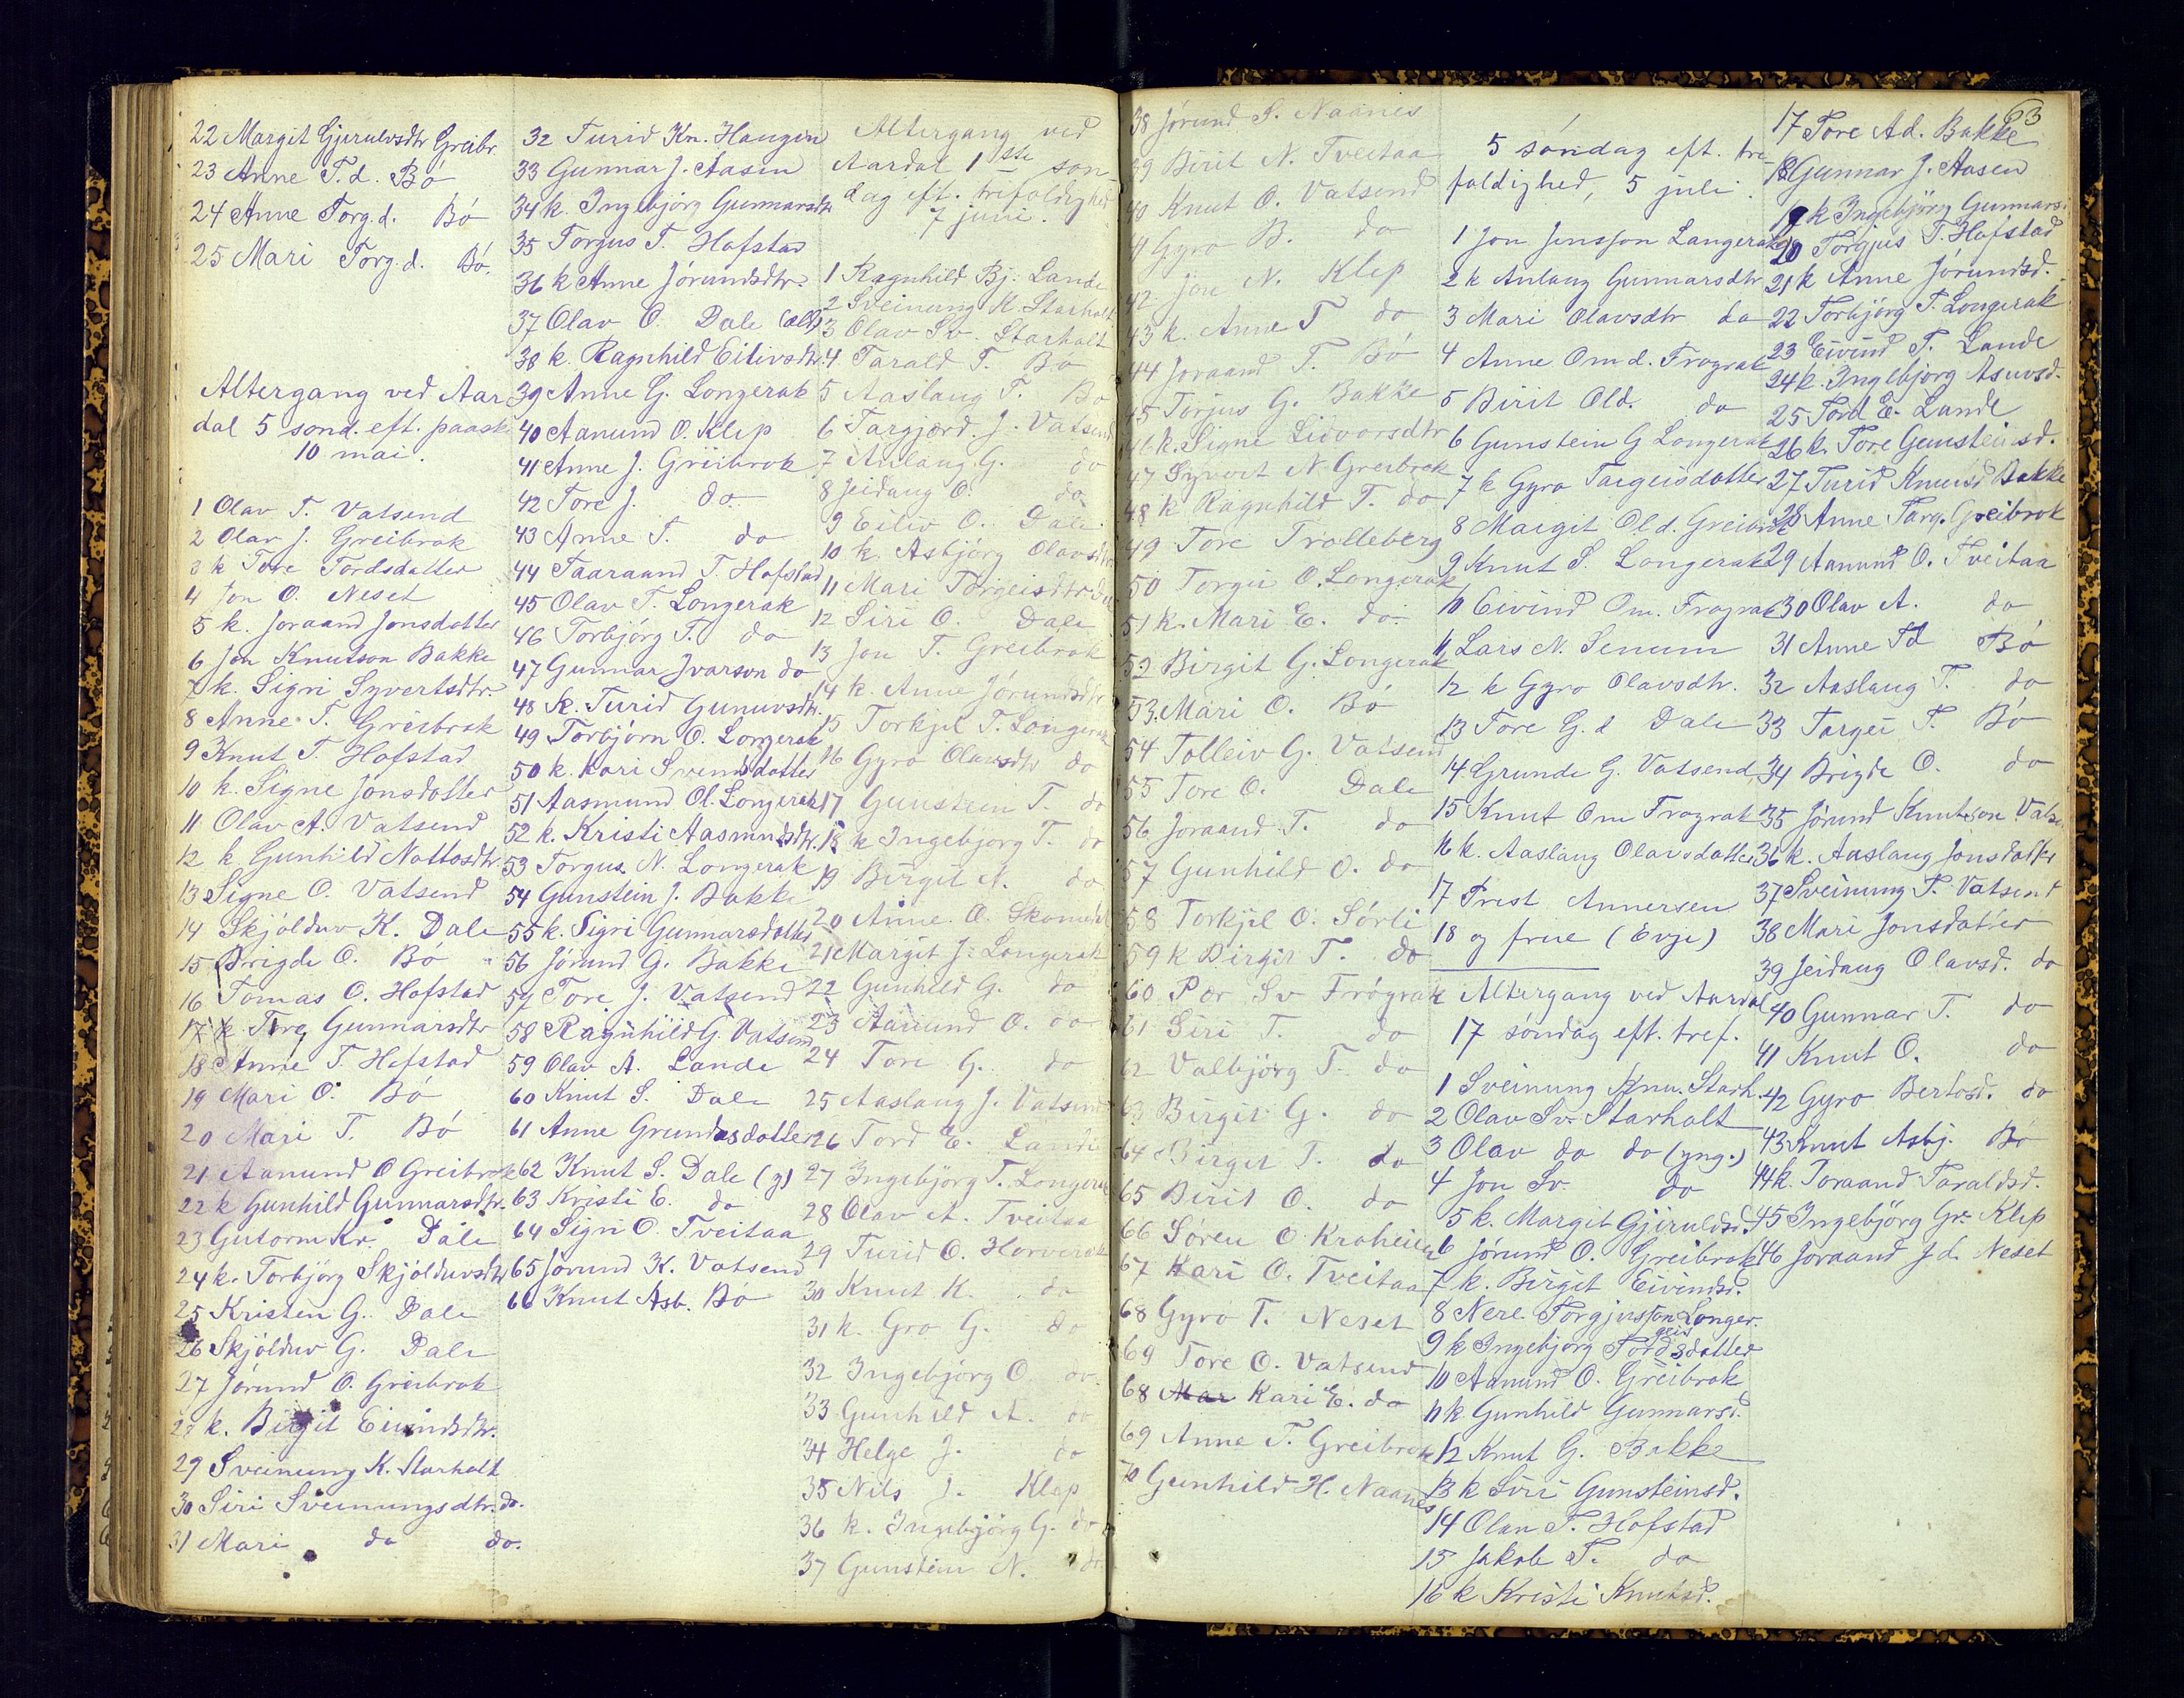 22 Margit Gjerulvsdtr Greibr.
23 Anne T. d. Bó
24 Anne Torg. d. Bó
25 Mari Torg. d. Bó.
Altergang ved Aar
dal 5 sond. eft. paaske
10 mai.
1 Olav T. Vatsend
2 Olav J. Greibrok
3 k Tore Tordsdatter
4 Jon O. Neset
5 k. Joraand Jonsdatter
6 Jon Knutson Bakke
7 k. Sigri Syvertsdtr.
8 Anne T. Greibrok
9 Knut T. Hofstad
10 k. Signe Jonsdatter
11 Olav A. Vatsend
12 k Gunhild Nottosdtr.
13 Signe O. Vatsend
14 Skjólduv K. Dale
15 Brigde O. Bó
16 Tomas O. Hofstad
17 k Tore Gunnarsdtr
18 Anne T. Hofstad
19 Mari O. Bó
20 Mari T. Bó
21 Aanund O Greibrok
22 k Gunhild Gunnarsdtr.
23 Gutorm Kr. Dale
24 k. Torbjörg Skjólduvsdtr
25 Kristen G. Dale
26 Skjólduv G. Dale
27 Jórund O. Greibrok
28 k. Birgit Eivindsdtr.
29 Sveinung K. Starholt
30 Siri Sveinungsdtr. do.
31 Mari do do.
32 Turid Kn. Haugen
33 Gunnar J. Aasen
34 k. Ingebjörg Gunnarsdtr
35 Torgus T. Hofstad
36 k Anne Jórundsdtr.
37 Olav O. Dale (eld)
38 k. Ragnhild Eilivsdtr.
39 Anne G. Longerak
40 Aanund O. Klep
41 Anne J. Greibrok
42 Tore J. do
43 Anne T. do
44 Taaraand T. Hofstad
45 Olav T. Longerak
46 Torbjörg T. do
47 Gunnar Ivarson do
48 k. Turid Gunuvsdtr.
49 Torbjörn O. Longerak
50 k. Kari Svendsdatter
51 Aasmund Ol. Longerak
52 k. Kristi Aasmundsdtr.
53 Torgus N. Longerak
54 Gunstein J. Bakke
55 k. Sigri Gunnarsdatter
56 Jórund G. Bakke
57 Tore J. Vatsend
58 Ragnhild G. Vatsend
59 Olav A. Lande
60 Knut S. Dale
61 Anne Grundesdatter
62 Knut S. Dale (g)
63 Kristi E. do
64 Sigri O. Tveitaa
65 Jórund K. Vatsend
66 Knut Asb. Bó
Altergang ved
Aardal 1ste son-
dag eft. trefoldighed
7 juni.
1 Ragnhild Bj. Lande
2 Sveinung K. Starholt
3 Olav Sv. Starholt
4 Tarald T. Bó
5 Aaslaug T. Bó
6 Targjærd J. Vatsend
7 Anlaug G. do
8 Jeidaug O. do
9 Eiliv O. Dale
10 k. Asbjörg Olavsdtr
11 Mari Torgeisdtr Dale
12 Siri O. Dale
13 Jon T. Greibrok
14 k. Anne Jórundsdtr
15 Torkjel T. Longerak
16 Gyro Olavsdtr do
17 Gunstein T. do
18 k Ingebjorg T. do
19 Birgit N. do
20 Anne O. Skomedal
21 Margit J. Longerak
22 Gunhild G. do
23 Aanund O. do
24 Tore G. do
25 Aaslaug J. Vatsend
26 Tord E. Lande
27 Ingebjörg T. Longerak
28 Olav A. Tveitaa
29 Turid O. Horverak
30 Knut K. do
31 k. Gro G. do
32 Ingebjórg O do.
33 Gunhild A. do
34 Helge J. do
35 Nils J. Klep
36 k. Ingebjörg G. do
37 Gunstein N. do
63
38 Jórund S. Naanes
39 Birit N. Tveitaa
40 Knut O. Vatsend
41 Gyro B. do
42 Jon N. Klep
43 k. Anne T do
44 Joraand T. Bó
45 Torjus G. Bakke
46 k. Signe Sidvorsdtr
47 Syvert N. Greibrok
48 k Ragnhild T. do
49 Tore Trolleberg
50 Torgei O. Longerak
51 k. Mari E. do.
52 Birgit G. Longerak
53. Mari O. Bó
54 Tolleiv G. Vatsend
55 Tore O. Dale
56 Joraand T. do
57 Gunhild O. do
58 Torkjel O. Sórli
59 k Birgit T. do
60 Per Sv Frógrak
61 Siri T. do
62 Valbjörg T. do
63 Birgit G. do
64 Birgit T. do
65 Birit O. do
66 Sóren O Kraheien
67 Kari O. Tveitaa
68 Gyro T. Neset
69 Tore O. Vatsend
68 Mar Kari E. do
69 Anne T. Greibrok
70 Gunhild H. Naanes
5 sóndag eft. tre-
foldighed, 5 juli
1 Jon Jensson Langerak
2 k Anlaug Gunnarsdtr
3 Mari Olavsdtr do
4 Anne Om d. Frograk
5 Birit Old. do
6 Gunstein G Longerak
7 k Gyro Targeisdatter
8 Margit Ol. d. Greibrok
9 Knut S. Longerak
10 Eivind Om. Frograk
11 Lars N. Senum
12 k Gyro Olavsdtr.
13 Tore G. d Dale
14 Grunde G. Vatsend
15 Knut Om Frograk
16 k. Aaslaug Olavsdatter
17 Prest Annersen
18 og frue (Evje)
Altergang ved Aardal
17 sóndag eft. tref.
1 Sveinung Knu. Starh.
2 Olav Sv. Starholt
3 Olav do do (yng.)
4 Jon Sv. do
5 k. Margit Gjeruldsd.
6 Jórund O. Greibrok
7 k. Birgit Eivindsd.
8 Nere Torgjusson Longer.
9 k Ingebjorg Tordsdatter
10 Aanund O. Greibrok
11 k Gunhild Gunnarsd.
12 Knut G. Bakke
13 k Siri Gunsteinsd.
14 Olav T. Hofstad
15 Jakob T. do
16 k Kristi Knutsd.
17 Tore Ad. Bakke
18 Gunnar J. Aasen
19 k Ingebjörg Gunnars.
20 Torgjus T. Hofstad
21 k Anne Jórundsd.
22 Torbjörg T. Longerak
23 Eivind T. Lande
24 k. Ingebjorg Asuvsd.
25 Tord E. Lande
26 k. Tore Gunsteinsd.
27 Turid Knutsd Bakke
28 Anne Targ. Greibrok
29 Aanund O. Tveitaa
30 Olav A. do
31 Anne T d Bó
32 Aaslaug T. do
33 Targei T. Bó
34 Brigde O. do
35 Jórund Knutsson Vatse
36 k. Aaslaug Jonsdatter
37 Sveinung T. Vatsend
38 Mari Jonsdatter
39 Jeidaug Olavsd. do
40 Gunnar T. do
41 Knut O. do
42 Gyro Bertosd. do
43 Knut Asbj. Bó
44 k. Toraand Taraldsd.
45 Ingebjörg Gr. Klep
46 Joraand J. d. Neset